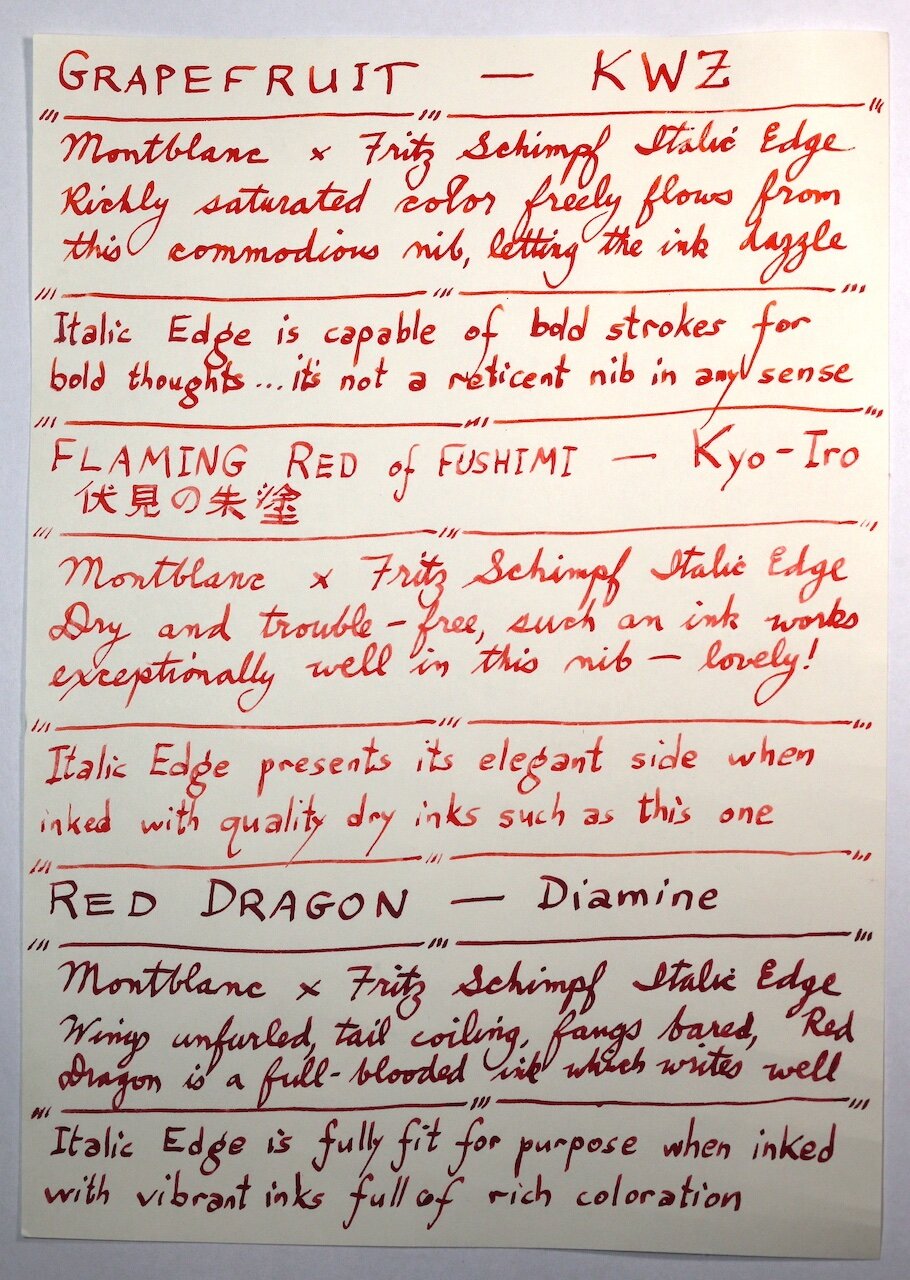 GRAPEFRUIT — KWZ
Montblanc x Fritz Schimpf Italic Edge
Richly saturated color freely flows from
this commodious nib, letting the ink dazzle
Italic Edge is capable of bold strokes for
bold thoughts...it's not a reticent nib in any sense
FLAMING RED of FUSHIMI — Kyo-Iro
伏見の朱塗
Montblanc x Fritz Schimpf Italic Edge
Dry and trouble-free, such an ink works
exceptionally well in this nib — lovely!
Italic Edge presents its elegant side when
inked with quality dry inks such as this one
RED DRAGON — Diamine
Montblanc x Fritz Schimpf Italic Edge
Wings unfurled, tail coiling, fangs bared, Red
Dragon is a full-blooded ink which writes well
Italic Edge is fully fit for purpose when inked
with vibrant inks full of rich coloration